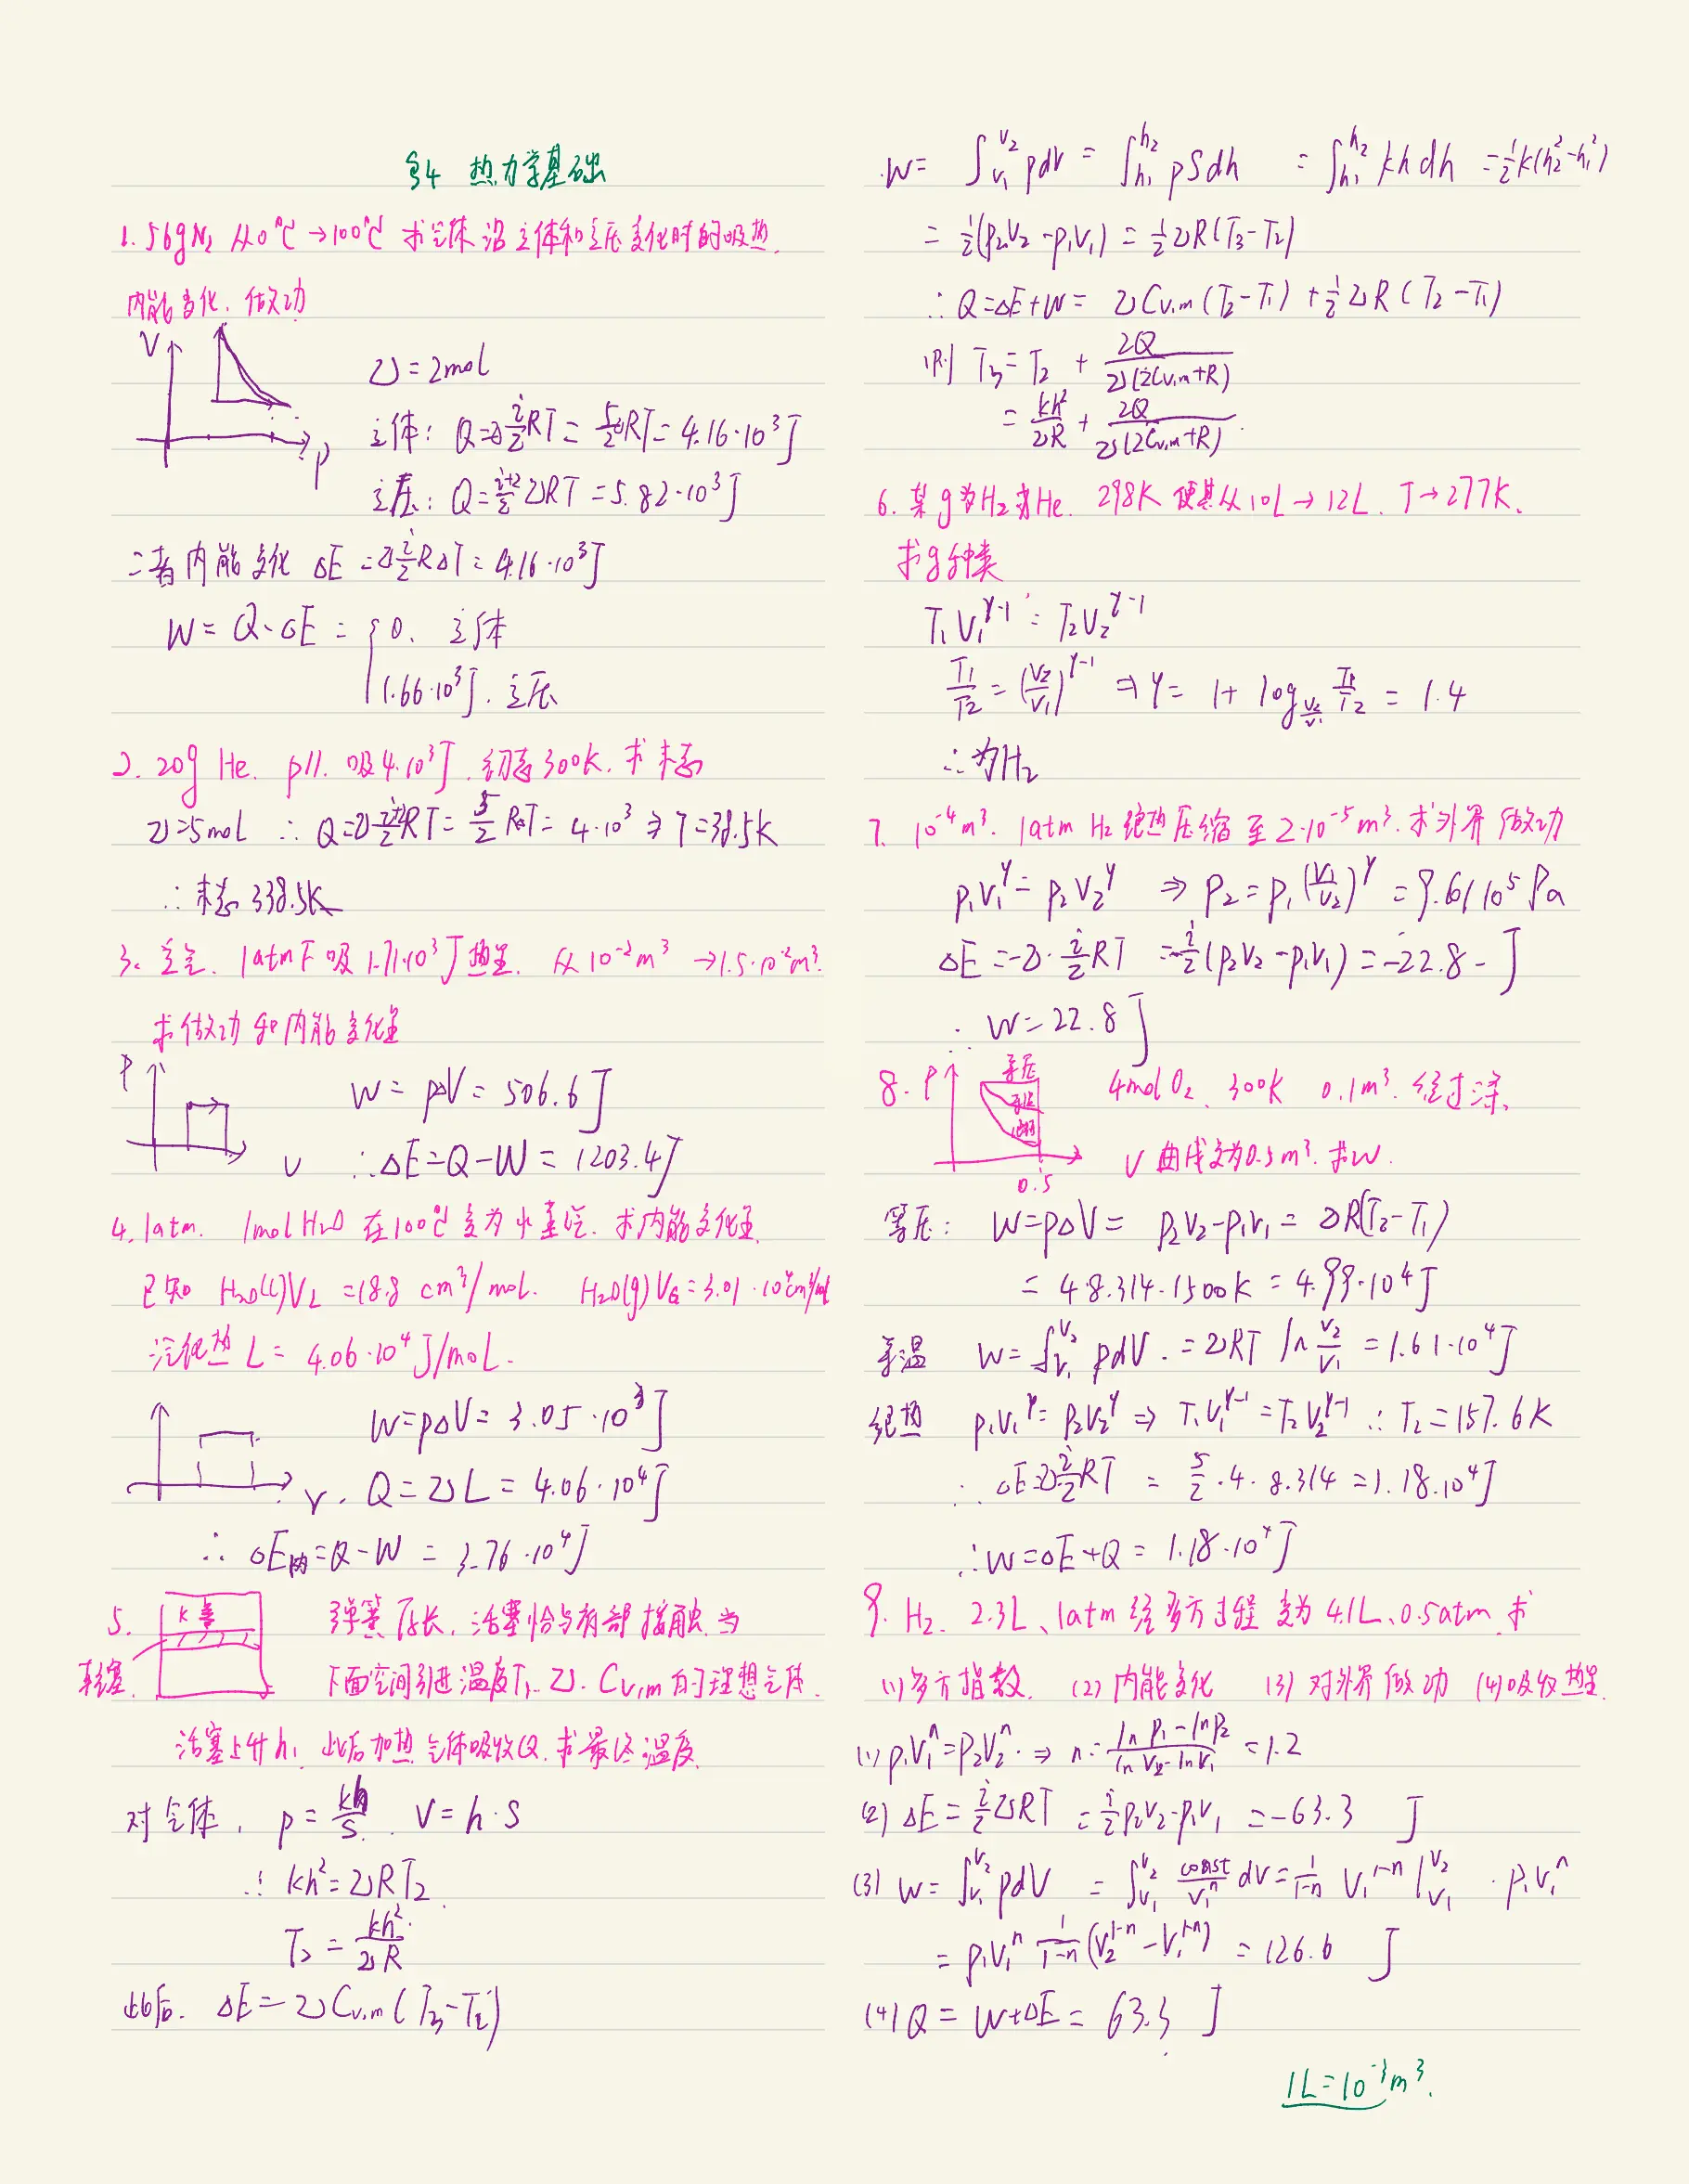 §4 热力学基础
1. 56g N₂ 从0℃→100℃ 求气体沿定体和定压变化时的吸热.
内能变化. 做功
V
p
ν=2mol
定体: Q=ν i/2 RT = 5/2 νRT = 4.16·10³J
定压: Q= (i+2)/2 νRT = 5.82·10³J
二者内能变化 ΔE = ν i/2 RΔT = 4.16·10³J
W = Q-ΔE = { 0. 定体
1.66·10³J. 定压
2. 20g He. p//. 吸4·10³J. 初态300K. 求末态
ν=5mol ∴ Q=ν (i+2)/2 RT = 5/2 RΔT = 4·10³ ⇒ T=38.5K
∴ 末态 338.5K
3. 定气. 1atm下吸1.71·10³J热量. 从10⁻²m³ →1.5·10⁻²m³.
求做功和内能变化量
P
W = pΔV = 506.6J
V ∴ΔE=Q-W = 1203.4J
4. 1atm. 1mol H₂O 在100℃变为水蒸汽. 求内能变化量.
已知 H₂O(l)V_L =18.8 cm³/mol. H₂O(g) V_G=3.01·10⁴cm³/mol
汽化热 L= 4.06·10⁴J/mol.
W=pΔV= 3.05·10³J
V. Q=νL = 4.06·10⁴J
∴ ΔE内=Q-W = 3.76·10⁴J
5. k 弹簧原长, 活塞恰与有部接触. 当
轻塞 下面空间引进温度T₁. ν. Cv,m的理想气体.
活塞上升h, 此后加热气体吸收Q. 求最终温度
对气体, p= kh/S. V=h·S
∴ kh²=νRT₂
T₂ = kh²/νR
此后. ΔE=νCv,m(T₃-T₂)
W= ∫_{V₁}^{V₂} pdV = ∫_{h₁}^{h₂} pSdh = ∫_{h₁}^{h₂} khdh =½k(h₂²-h₁²)
= ½(p₂V₂-p₁V₁) = ½νR(T₃-T₂)
∴ Q=ΔE+W= νCv,m(T₂-T₁)+½νR(T₂-T₁)
则 T₃=T₂ + 2Q/ν(2Cv,m+R)
= kh²/νR + 2Q/ν(2Cv,m+R).
6. 某g为H₂或He. 298K 使其从10L→12L. T→277K.
求g种类
T₁V₁^{γ-1} = T₂V₂^{γ-1}
T₁/T₂ = (V₂/V₁)^{γ-1} ⇒γ= 1+ log_{V₂/V₁} T₁/T₂ = 1.4
∴为H₂
7. 10⁻⁴m³. 1atm H₂绝热压缩至2·10⁻⁵m³. 求外界做功
p₁V₁^γ= p₂V₂^γ ⇒ P₂=p₁(V₁/V₂)^γ =9.61 10⁵Pa
ΔE=-ν· i/2 RT =-i/2(p₂V₂-p₁V₁)=-22.8- J
∴ W=22.8J
8. P 等压 等温 绝热 0.5 4mol O₂、300K 0.1m³. 经过涂.
V 曲线变为0.5m³. 求W.
等压: W=pΔV= p₂V₂-p₁V₁= νR(T₂-T₁)
= 4·8.314·1500K = 4.99·10⁴J
等温 W=∫_{V₁}^{V₂} pdV. =νRT ln V₂/V₁ =1.61·10⁴J
绝热 p₁V₁^γ=p₂V₂^γ ⇒ T₁V₁^{γ-1}=T₂V₂^{γ-1} ∴T₂=157.6K
∴ ΔE=ν i/2 RT = 5/2·4·8.314=1.18·10⁴J
∴W=ΔE+Q= 1.18·10⁴J
9. H₂. 2.3L、1atm 经多方过程变为4.1L、0.5atm. 求
(1)多方指数. (2)内能变化 (3)对外界做功 (4)吸收热量.
(1) p₁V₁ⁿ=p₂V₂ⁿ. ⇒ n= (ln p₁-lnp₂)/(ln V₂-lnV₁) =1.2
(2) ΔE= i/2 νRT = i/2 p₂V₂-p₁V₁ =-63.3 J
(3) W=∫_{V₁}^{V₂} pdV = ∫_{V₁}^{V₂} const/V₁ⁿ dV= 1/(1-n) V₁^{1-n} |_{V₁}^{V₂} · p₁V₁ⁿ
= p₁V₁ⁿ 1/(1-n) (V₂^{1-n}-V₁^{1-n}) =126.6 J
(4)Q = W+ΔE= 63.3 J
1L=10⁻³m³.